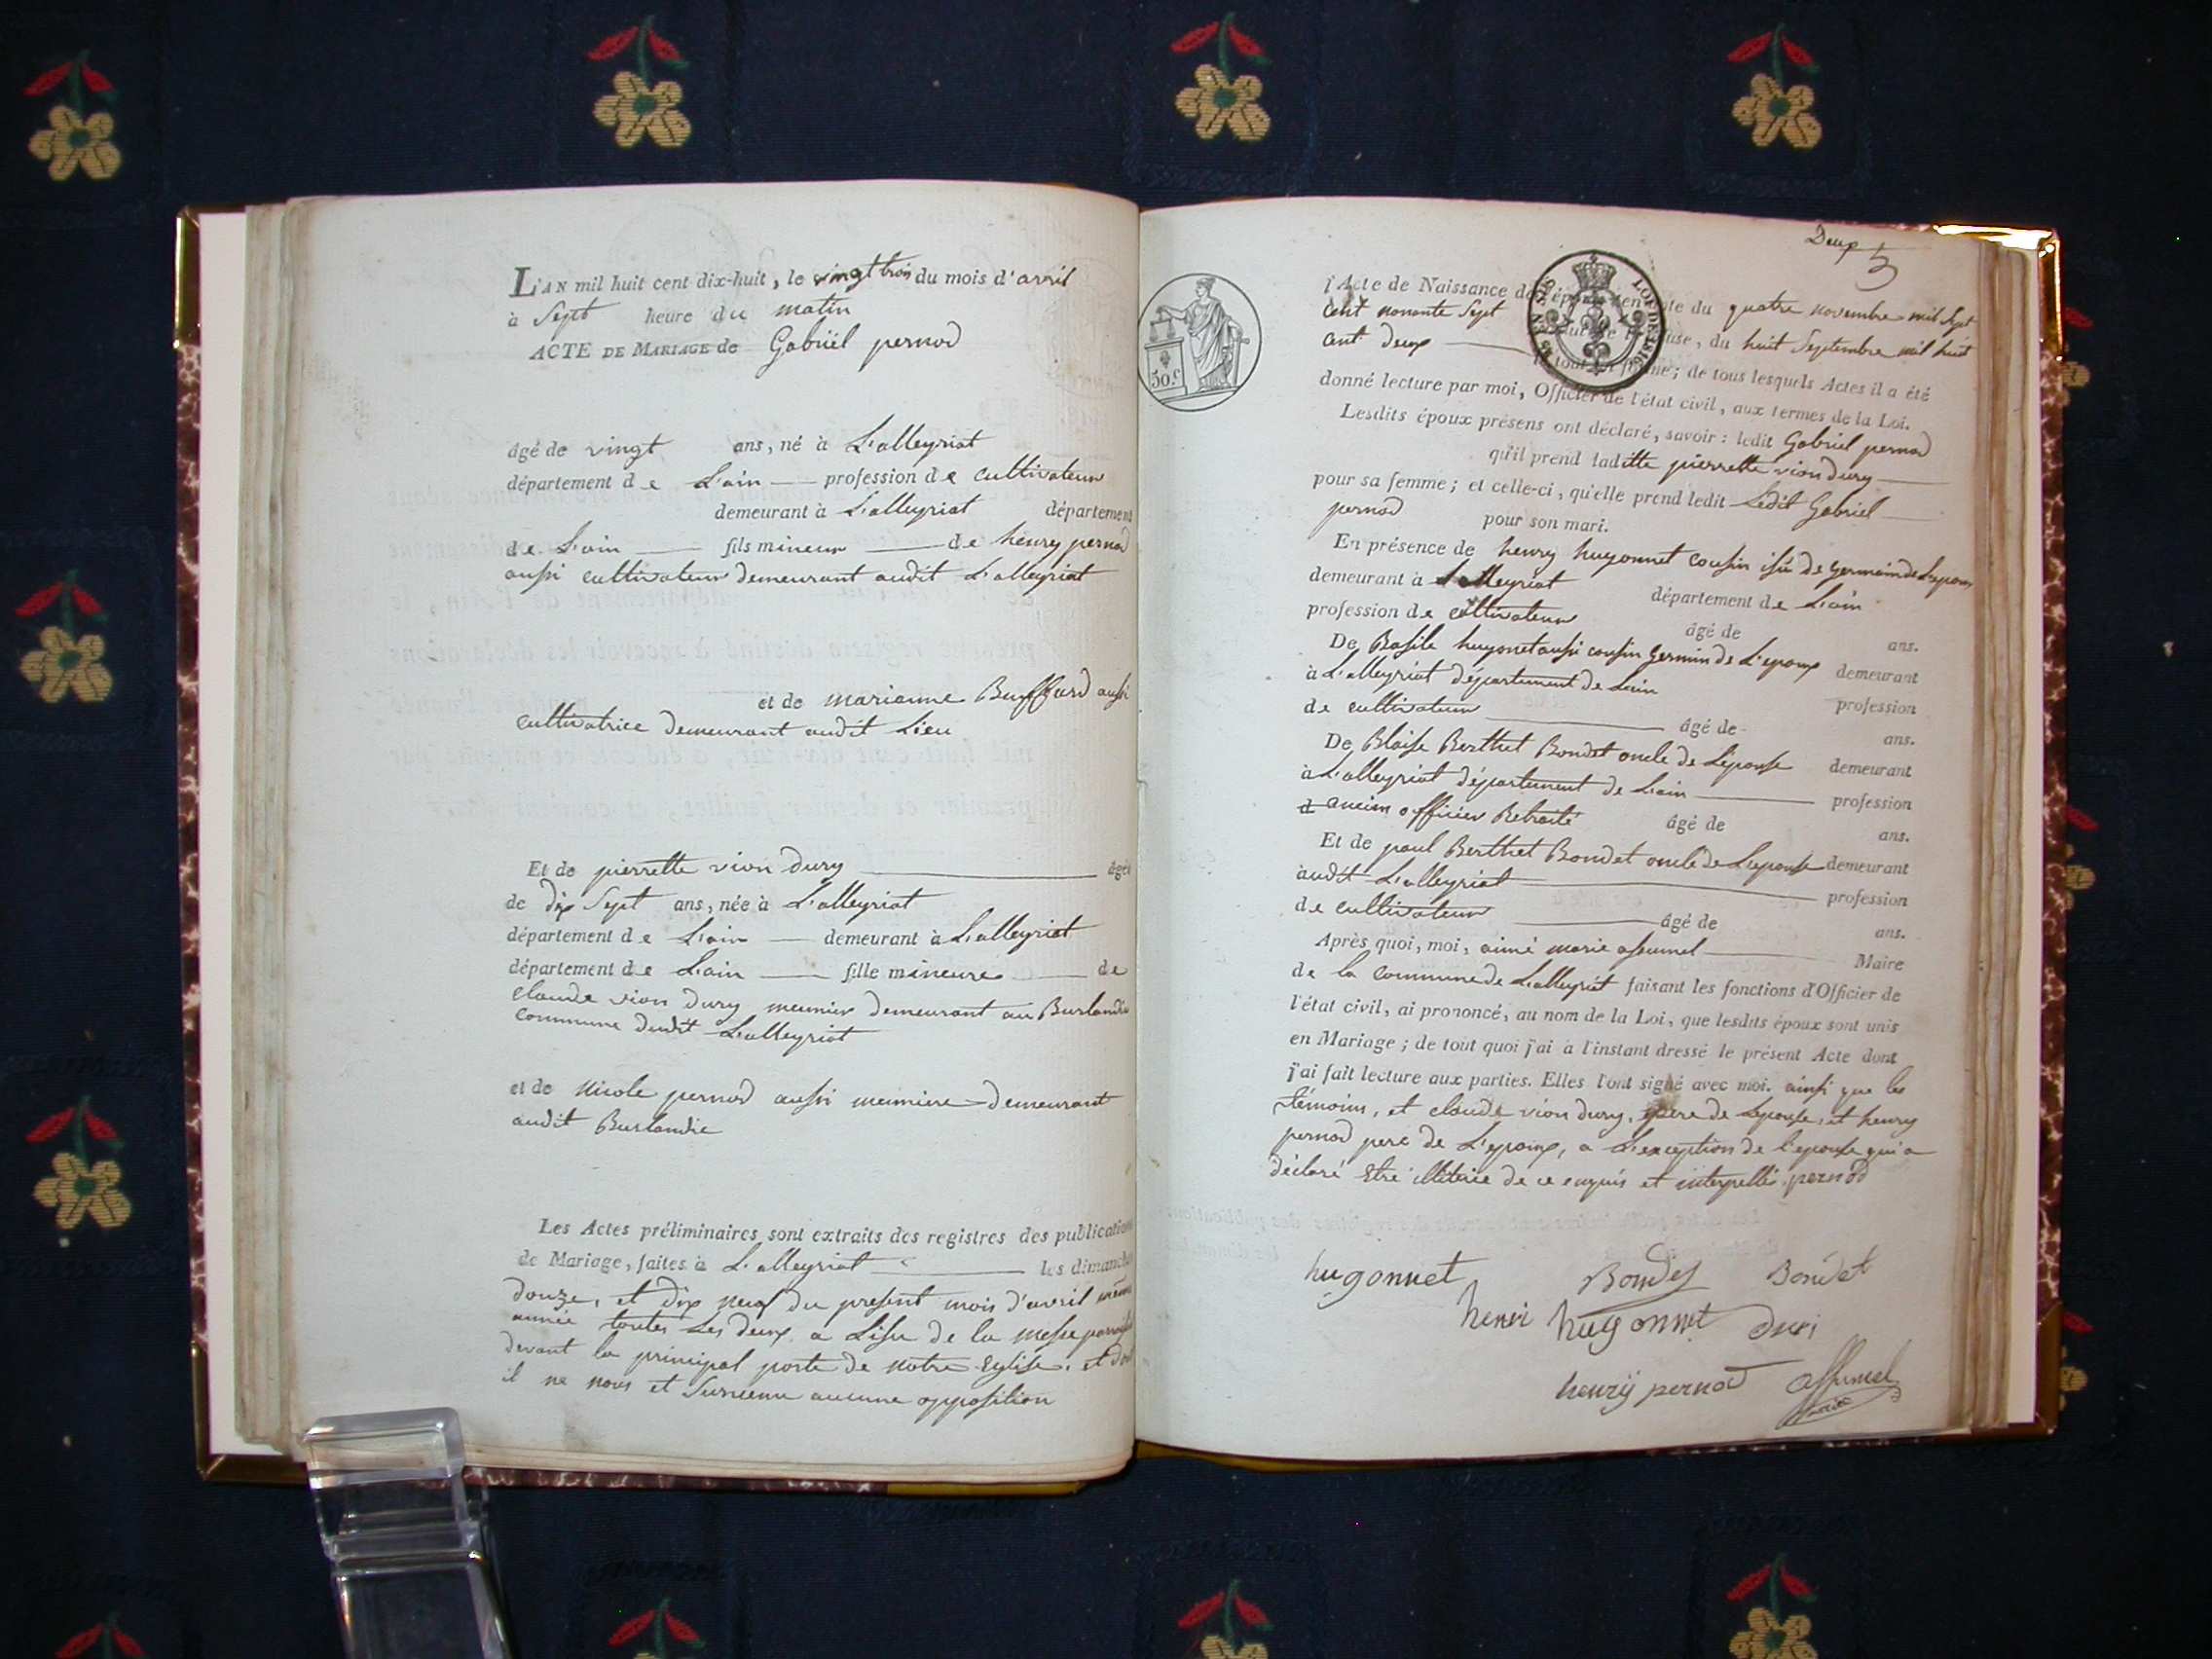 L'AN mil huit cent dix-huit, le vingt trois du mois d'avril
à Sept heure du matin
ACTE DE MARIAGE de Gabriël pernod
âgé de vingt ans, né à L'alleyriat
département de L'ain profession de cultivateur
demeurant à L'alleyriat département
de L'ain fils mineur de henry pernod
aussi cultivateur demeurant audit L'alleyriat
et de marianne Buffard aussi
cultivatrice demeurant audit Lieu
Et de pierrette vion dury âgée
de dix Sept ans, née à L'alleyriat
département de L'ain demeurant à L'alleyriat
département de L'ain fille mineure de
claude vion dury meunier demeurant au Burlandier
commune dudit L'alleyriat
et de nicole pernod aussi meuniere demeurant
audit Burlandie
Les Actes préliminaires sont extraits des registres des publications
de Mariage, faites à L'alleyriat les dimanches
douze, et dix neuf du present mois d'avril même
année toutes Les deux a Lissu de la messe paroissiale
devant la principal porte de notre Eglise, et dont
il ne nous et Survenu aucune opposition
Deux
5
l'Acte de Naissance de du quatre novembre mil Sept
cent nonante Sept du huit Septembre mil huit
cent deux le tout en forme; de tous lesquels Actes il a été
donné lecture par moi, Officier de l'état civil, aux termes de la Loi.
LOI DE 1816
50 c
Lesdits époux présens ont déclaré, savoir : ledit Gabriel pernod
qu'il prend laditte pierrette vion dury
pour sa femme; et celle-ci, qu'elle prend ledit Ledit Gabriel
pernod pour son mari.
En présence de henry hugonnet cousin issu de germain de L'epoux
demeurant à L'alleyriat département de L'ain
profession de cultivateur âgé de ans.
De Basile hugonet aussi cousin germin de L'epoux demeurant
à L'alleyriat département de Lain profession
de cultivateur âgé de ans.
De Blaise Berthet Bondet oncle de L'épouse demeurant
à L'alleyriat département de L'ain profession
d ancien officier Retraité âgé de ans.
Et de paul Berthet Bondet oncle de Lepouse demeurant
audit L'alleyriat profession
de cultivateur âgé de ans.
Après quoi, moi, aimé marie assumel Maire
de la commune de L'alleyriat faisant les fonctions d'Officier de
l'état civil, ai prononcé, au nom de la Loi, que lesdits époux sont unis
en Mariage; de tout quoi j'ai à l'instant dressé le présent Acte dont
j'ai fait lecture aux parties. Elles l'ont signé avec moi. ainsi que les
témoins, et claude vion dury, pere de Lepouse, et henry
pernod pere de L'epoux, a L'exception de l'epouse qui a
déclaré Etre illiterée de ce enquis et interpellés. pernod
hugonnet Bondet Bondet
henri hugonnet duri
henrÿ pernod assumel
maire